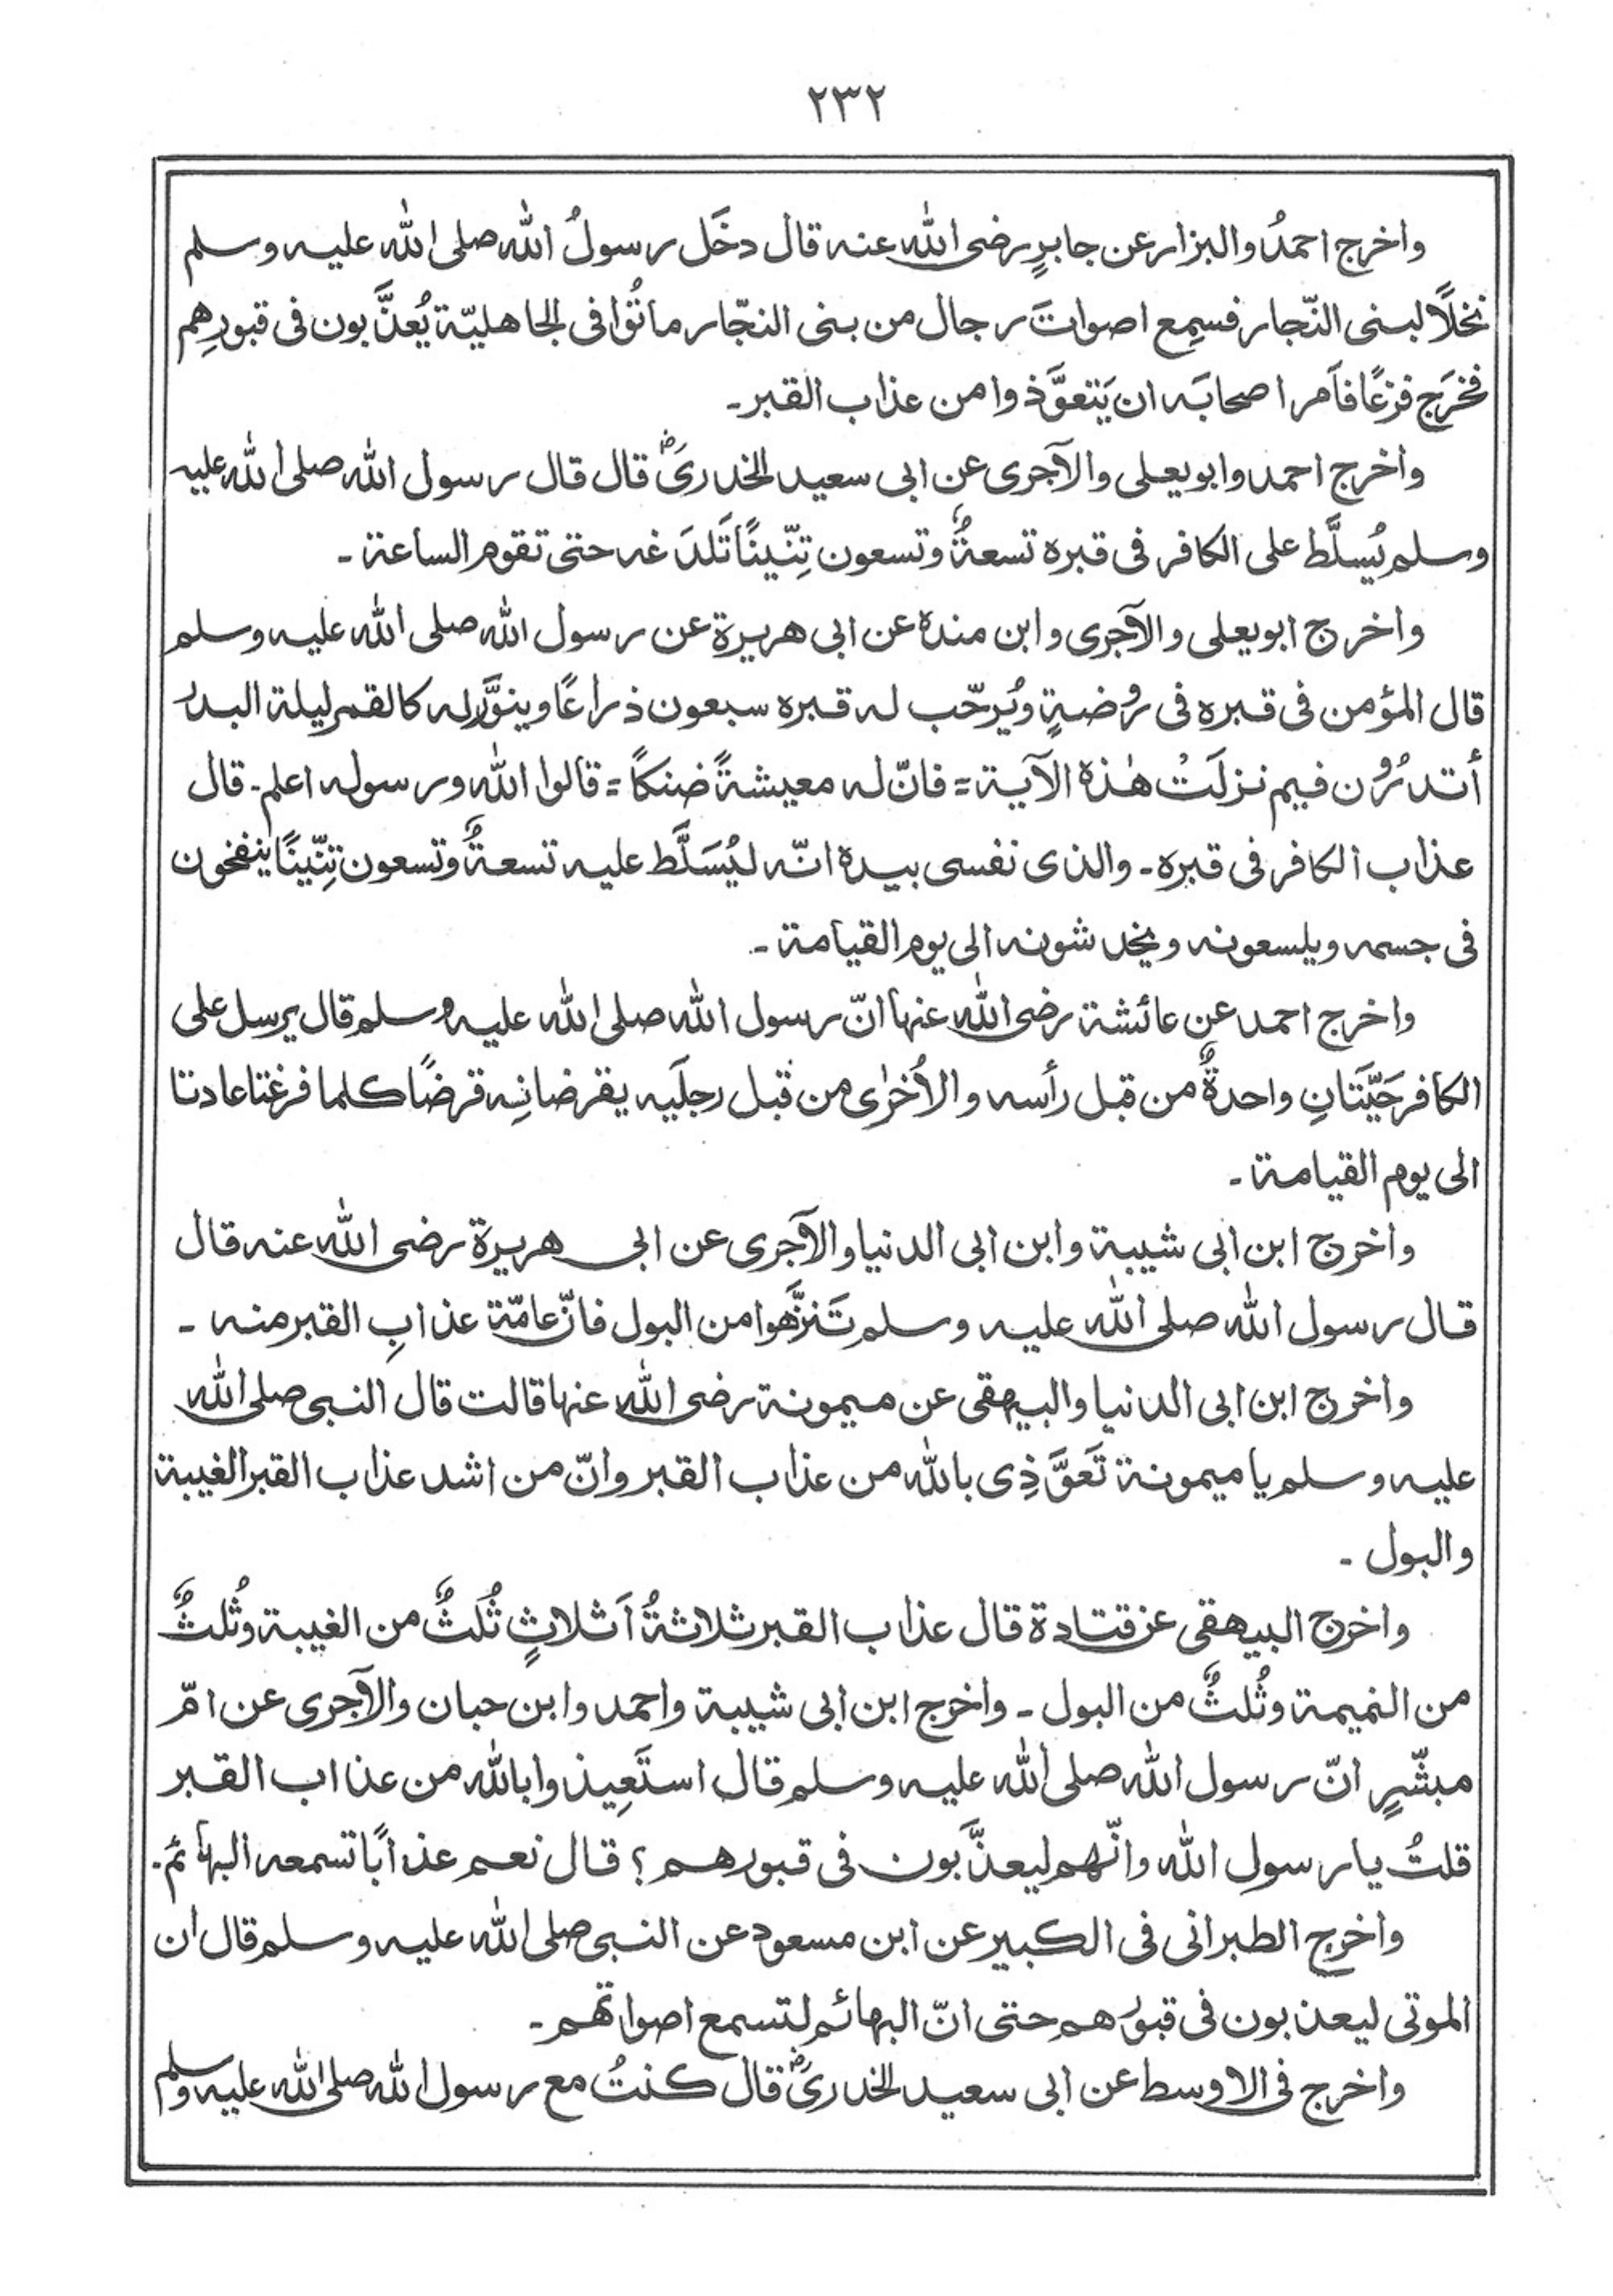 ٢٣٢
واخرج احمدُ والبزار عن جابرٍ رضى الله عنه قال دخَل رسولُ الله صلى الله عليه وسلم
نخلًا لبنى النّجار فسمِع اصواتَ رجال من بنى النجّار ماتُوا فى الجاهليّة يُعذَّبون فى قبورِهم
فخرَج فزعًا فاَمر اصحابَه ان يَتعوَّذوا من عذاب القبر۔
واخرج احمد وابويعلى والآجرى عن ابى سعيد الخدرىؓ قال قال رسول الله صلى الله عليه
وسلم يُسلَّط على الكافر فى قبره تسعةٌ وتسعون تِنّينًا تَلدَغه حتى تقوم الساعة ۔
واخرج ابويعلى والآجرى وابن مندة عن ابى هريرة عن رسول الله صلى الله عليه وسلم
قال المؤمن فى قبره فى رَوْضةٍ ويُرحّب له قبره سبعون ذراعًا وينوَّر له كالقمر ليلة البدر
أتدرُوْن فيم نزلَتْ هٰذه الآية = فانّ له معيشةً ضنكًا = قالوا الله ورسوله اعلم۔ قال
عذاب الكافر فى قبره ۔ والذى نفسى بيده انّه ليُسَلَّط عليه تسعةٌ وتسعون تِنّينًا ينفخون
فى جسمه ويلسعونه ويخدشونه الى يوم القيامة ۔
واخرج احمد عن عائشة رضى الله عنها انّ رسول الله صلى الله عليه وسلم قال يرسل على
الكافر حَيّتَانِ واحدةٌ من قبل رأسه والأخرٰى من قبل رجلَيه يقرضانِه قرضًا كلما فرغتا عادتا
الى يوم القيامة ۔
واخرج ابن ابى شيبة وابن ابى الدنيا والآجرى عن ابى هريرة رضى الله عنه قال
قال رسول الله صلى الله عليه وسلم تَنزَّهوا من البول فانّ عامّة عذابِ القبر منه ۔
واخرج ابن ابى الدنيا والبيهقى عن ميمونة رضى الله عنها قالت قال النبى صلى الله
عليه وسلم يا ميمونة تَعوَّذِى بالله من عذاب القبر وانّ من اشد عذاب القبر الغيبة
والبول ۔
واخرج البيهقى عن قتادة قال عذاب القبر ثلاثةُ اَثلاثٍ ثُلثٌ من الغيبة وثُلثٌ
من النميمة وثُلثٌ من البول ۔ واخرج ابن ابى شيبة واحمد وابن حبان والآجرى عن امّ
مبشّرٍ انّ رسول الله صلى الله عليه وسلم قال استَعِيذوا بالله من عذاب القبر
قلتُ يا رسول الله وانّهم ليعذَّبون فى قبورهم ؟ قال نعم عذابًا تسمعه البهائم۔
واخرج الطبرانى فى الكبير عن ابن مسعود عن النبى صلى الله عليه وسلم قال ان
الموتى ليعذبون فى قبورهم حتى انّ البهائم لتسمع اصواتهم ۔
واخرج فى الاوسط عن ابى سعيد الخدرىؓ قال كنتُ مع رسول الله صلى الله عليه وسلم